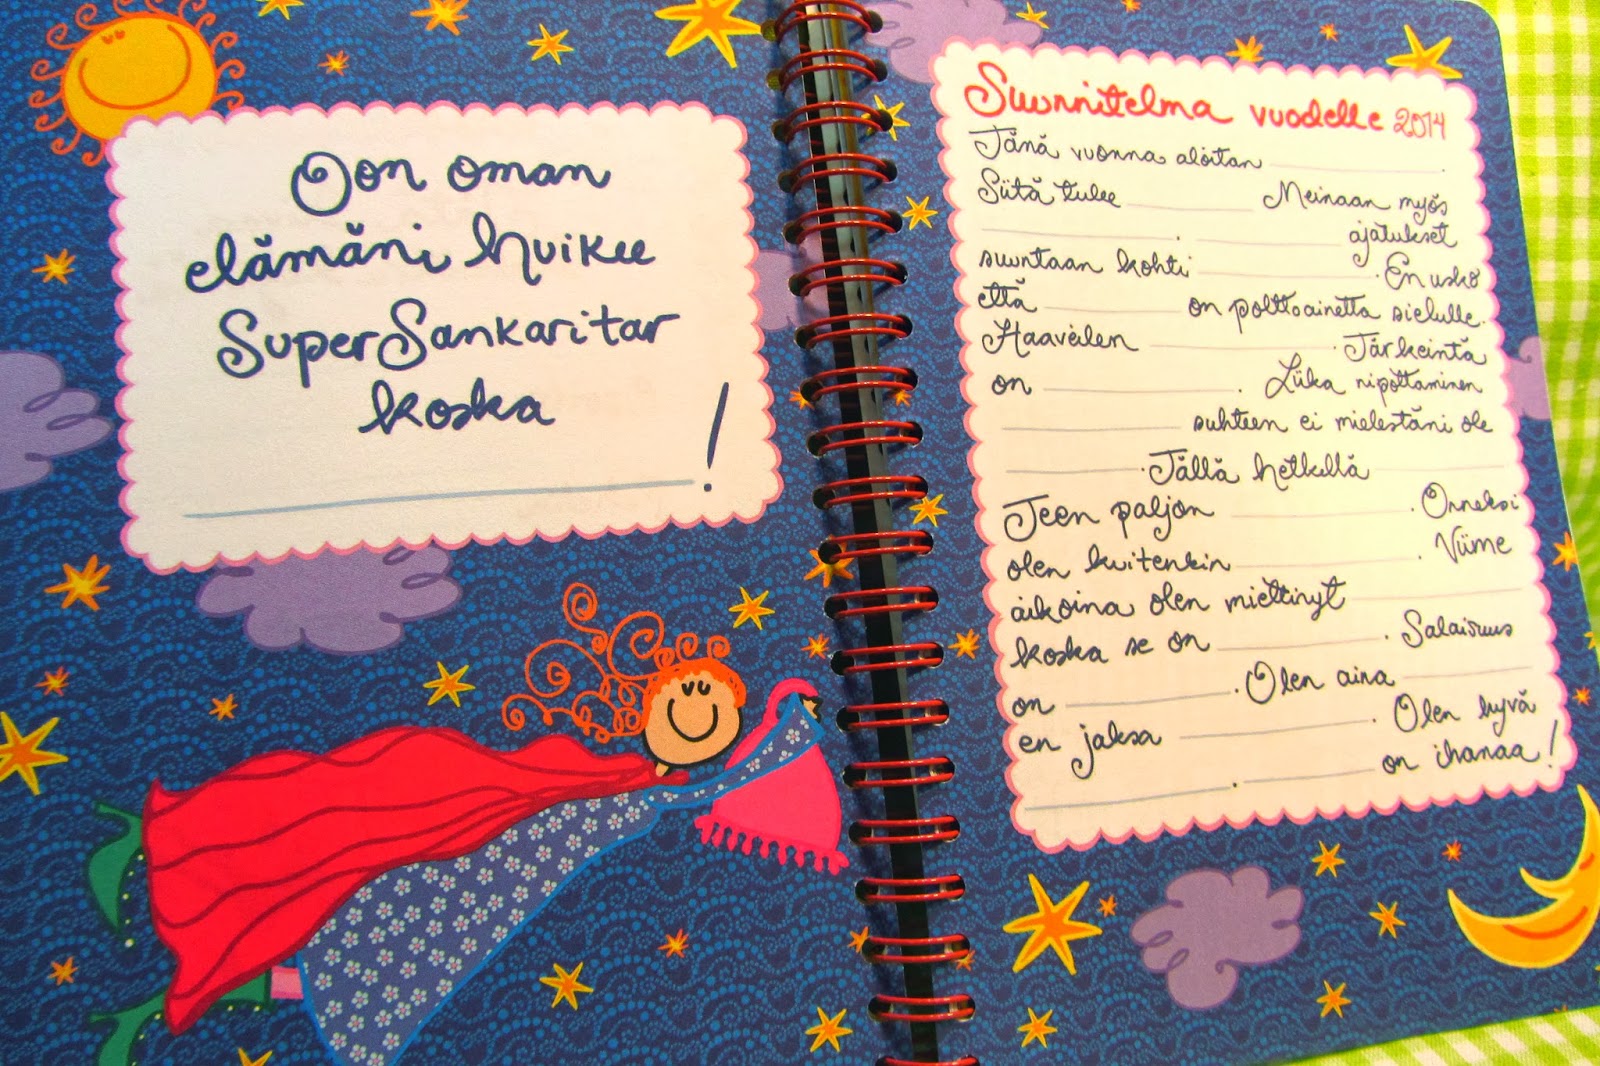 Oon oman
elämäni huikee
SuperSankaritar
koska
____________!
Suunnitelma vuodelle 2014
Tänä vuonna aloitan ____________.
Siitä tulee ____________ Meinaan myös
____________. ____________ ajatukset
suuntaan kohti ____________. En usko
että ____________ on polttoainetta sielulle.
Haaveilen ____________. Järkeintä
on ____________. Liika nipottaminen
____________ suhteen ei mielestäni ole
____________. Tällä hetkellä ____________
Teen paljon ____________. Onneksi
olen kuitenkin ____________. Viime
aikoina olen miettinyt ____________
koska se on ____________. Salaisuus
on ____________. Olen aina ____________
en jaksa ____________. Olen hyvä
____________. ____________ on ihanaa!